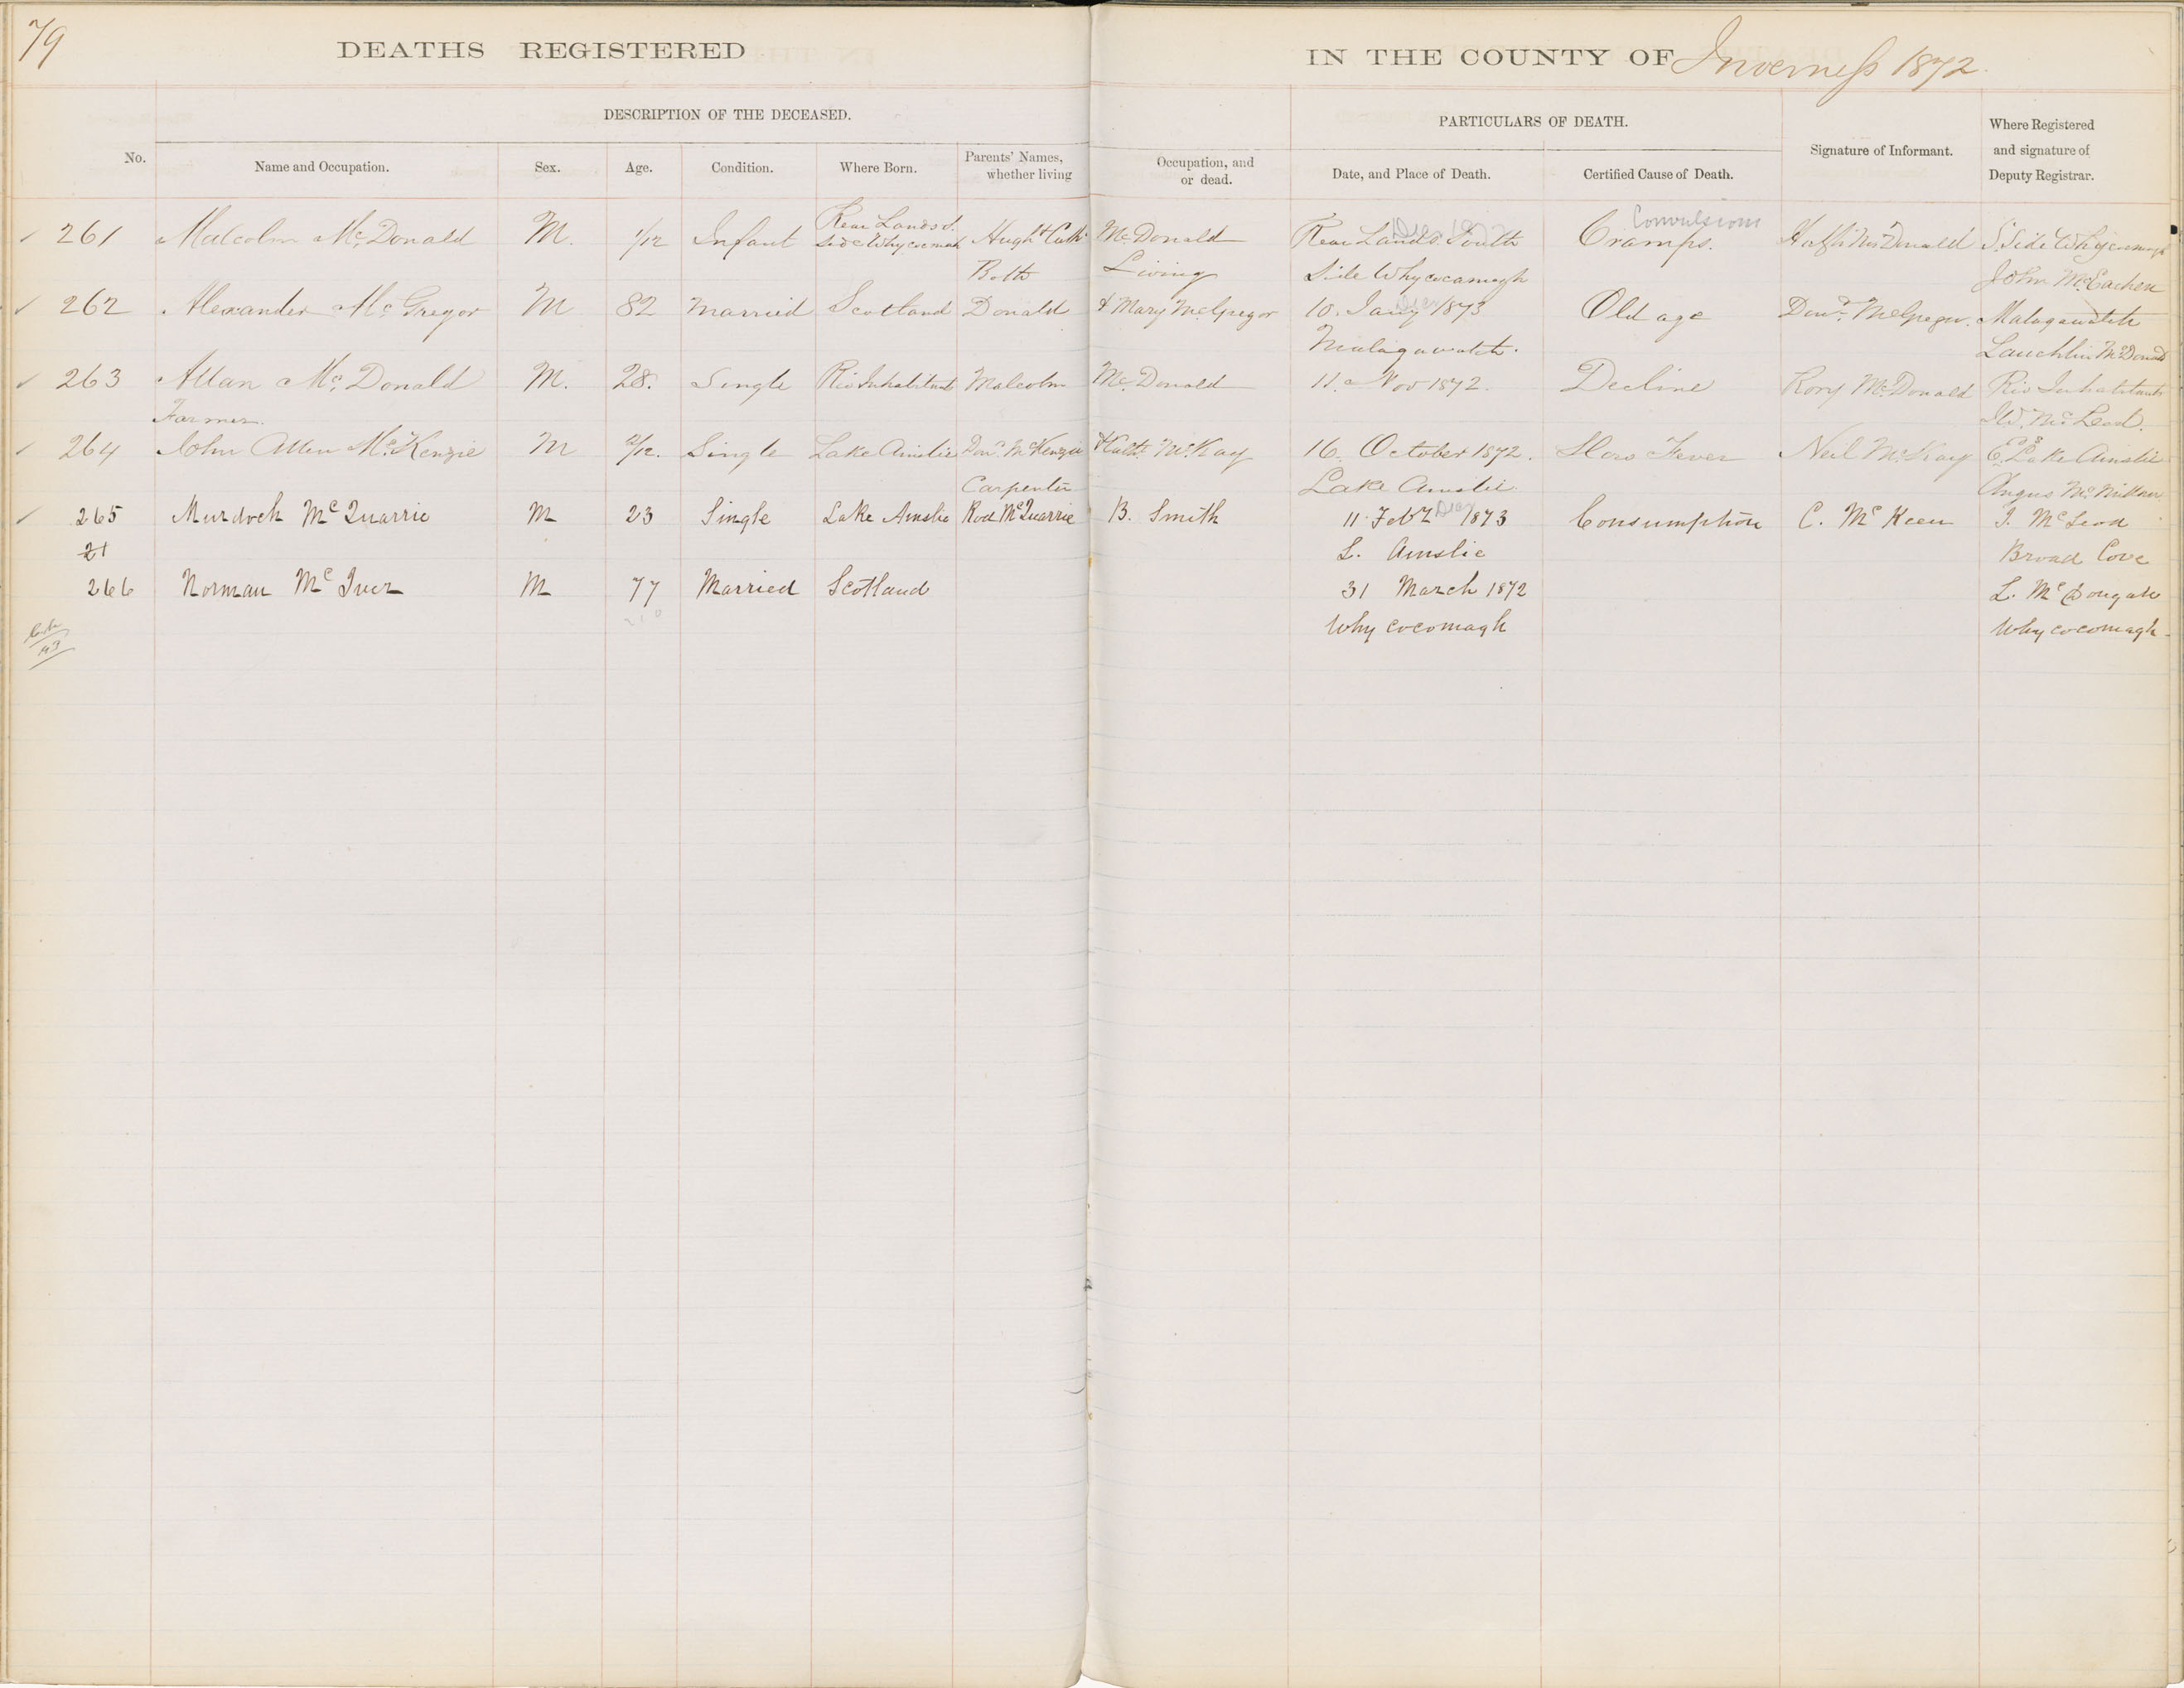 79
DEATHS REGISTERED IN THE COUNTY OF Inverness 1872
DESCRIPTION OF THE DECEASED.
PARTICULARS OF DEATH.
No.
Name and Occupation.
Sex.
Age.
Condition.
Where Born.
Parents' Names, whether living
Occupation, and or dead.
Date, and Place of Death.
Certified Cause of Death.
Signature of Informant.
Where Registered and signature of Deputy Registrar.
261 Malcolm McDonald M. 1/12 Infant Rear Lands S. Side Whycocomah Hugh & Cath McDonald Rear Lands South Cramps. Convulsions Hugh McDonald S. Side Whycocomagh
Dec 1872
Both Living Side Whycocamagh John McEachen
262 Alexander McGregor M 82 Married Scotland Donald & Mary McGregor 10. Jany 1873 Old age Dond. McGregor. Malagawatch
Malagawatch. Lauchlin McDonald
263 Allan McDonald M. 28. Single Riv Inhabitant Malcolm McDonald 11. Nov 1872. Decline Rory McDonald Riv Inhabitants
Farmer. McLeod.
264 John Allen McKenzie M 2/12. Single Lake Ainslie Don. McKenzie & Cath. McKay 16. October 1872. Slow Fever Neil McKay E. Lake Ainslie
Carpenter Lake Ainslie Angus McMillan
265 Murdoch McQuarrie M 23 Single Lake Ainslie Rod McQuarrie B. Smith 11 Feby 1873 Consumption C. McKeen J. McLeod
21 L. Ainslie Broad Cove
266 Norman McIver M 77 Married Scotland 31 March 1872 L. McDougall
Whycocomagh Whycocomagh